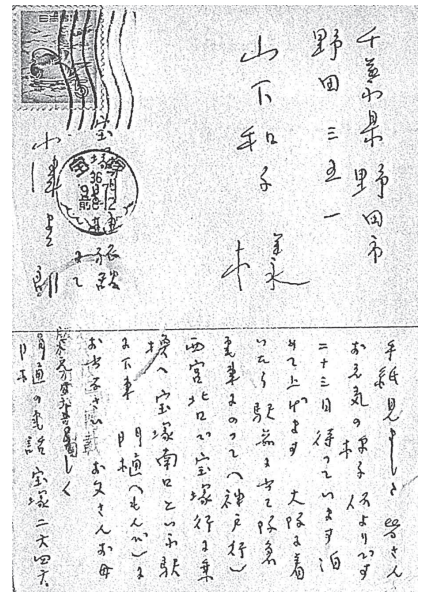 千葉県野田市
野田三五一
山下和子様
宝塚
36
小津安二郎
手紙見ました 皆さん
お元気の様子 何よりです
二十三日待っています 泊
めて上げます 大阪に着
いたら駅前に出て阪急
電車にのって(神戸行)
西宮北口で宝塚行に乗
換へ 宝塚南口といふ駅
に下車 門樋(もんぴ)に
お出で下さい お父さんお母
さんによろしく
門樋の電話 宝塚二六四六